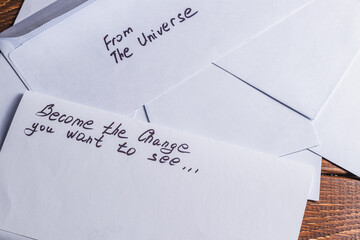 From
The Universe
Become the Change
you want to see...